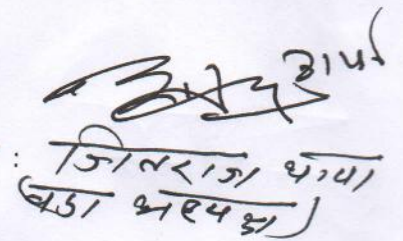 : जितराज थापा
(वडा अध्यक्ष)